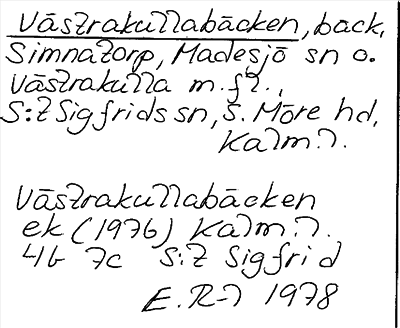 Västrakullabäcken, bäck,
Simnatorp, Madesjö sn o.
Västrakulla m.fl.,
S:t Sigfrids sn, S. Möre hd,
Kalm.l.
Västrakullabäcken
ek (1976) Kalm.l.
4G 7c S:t Sigfrid
E.R-l 1978